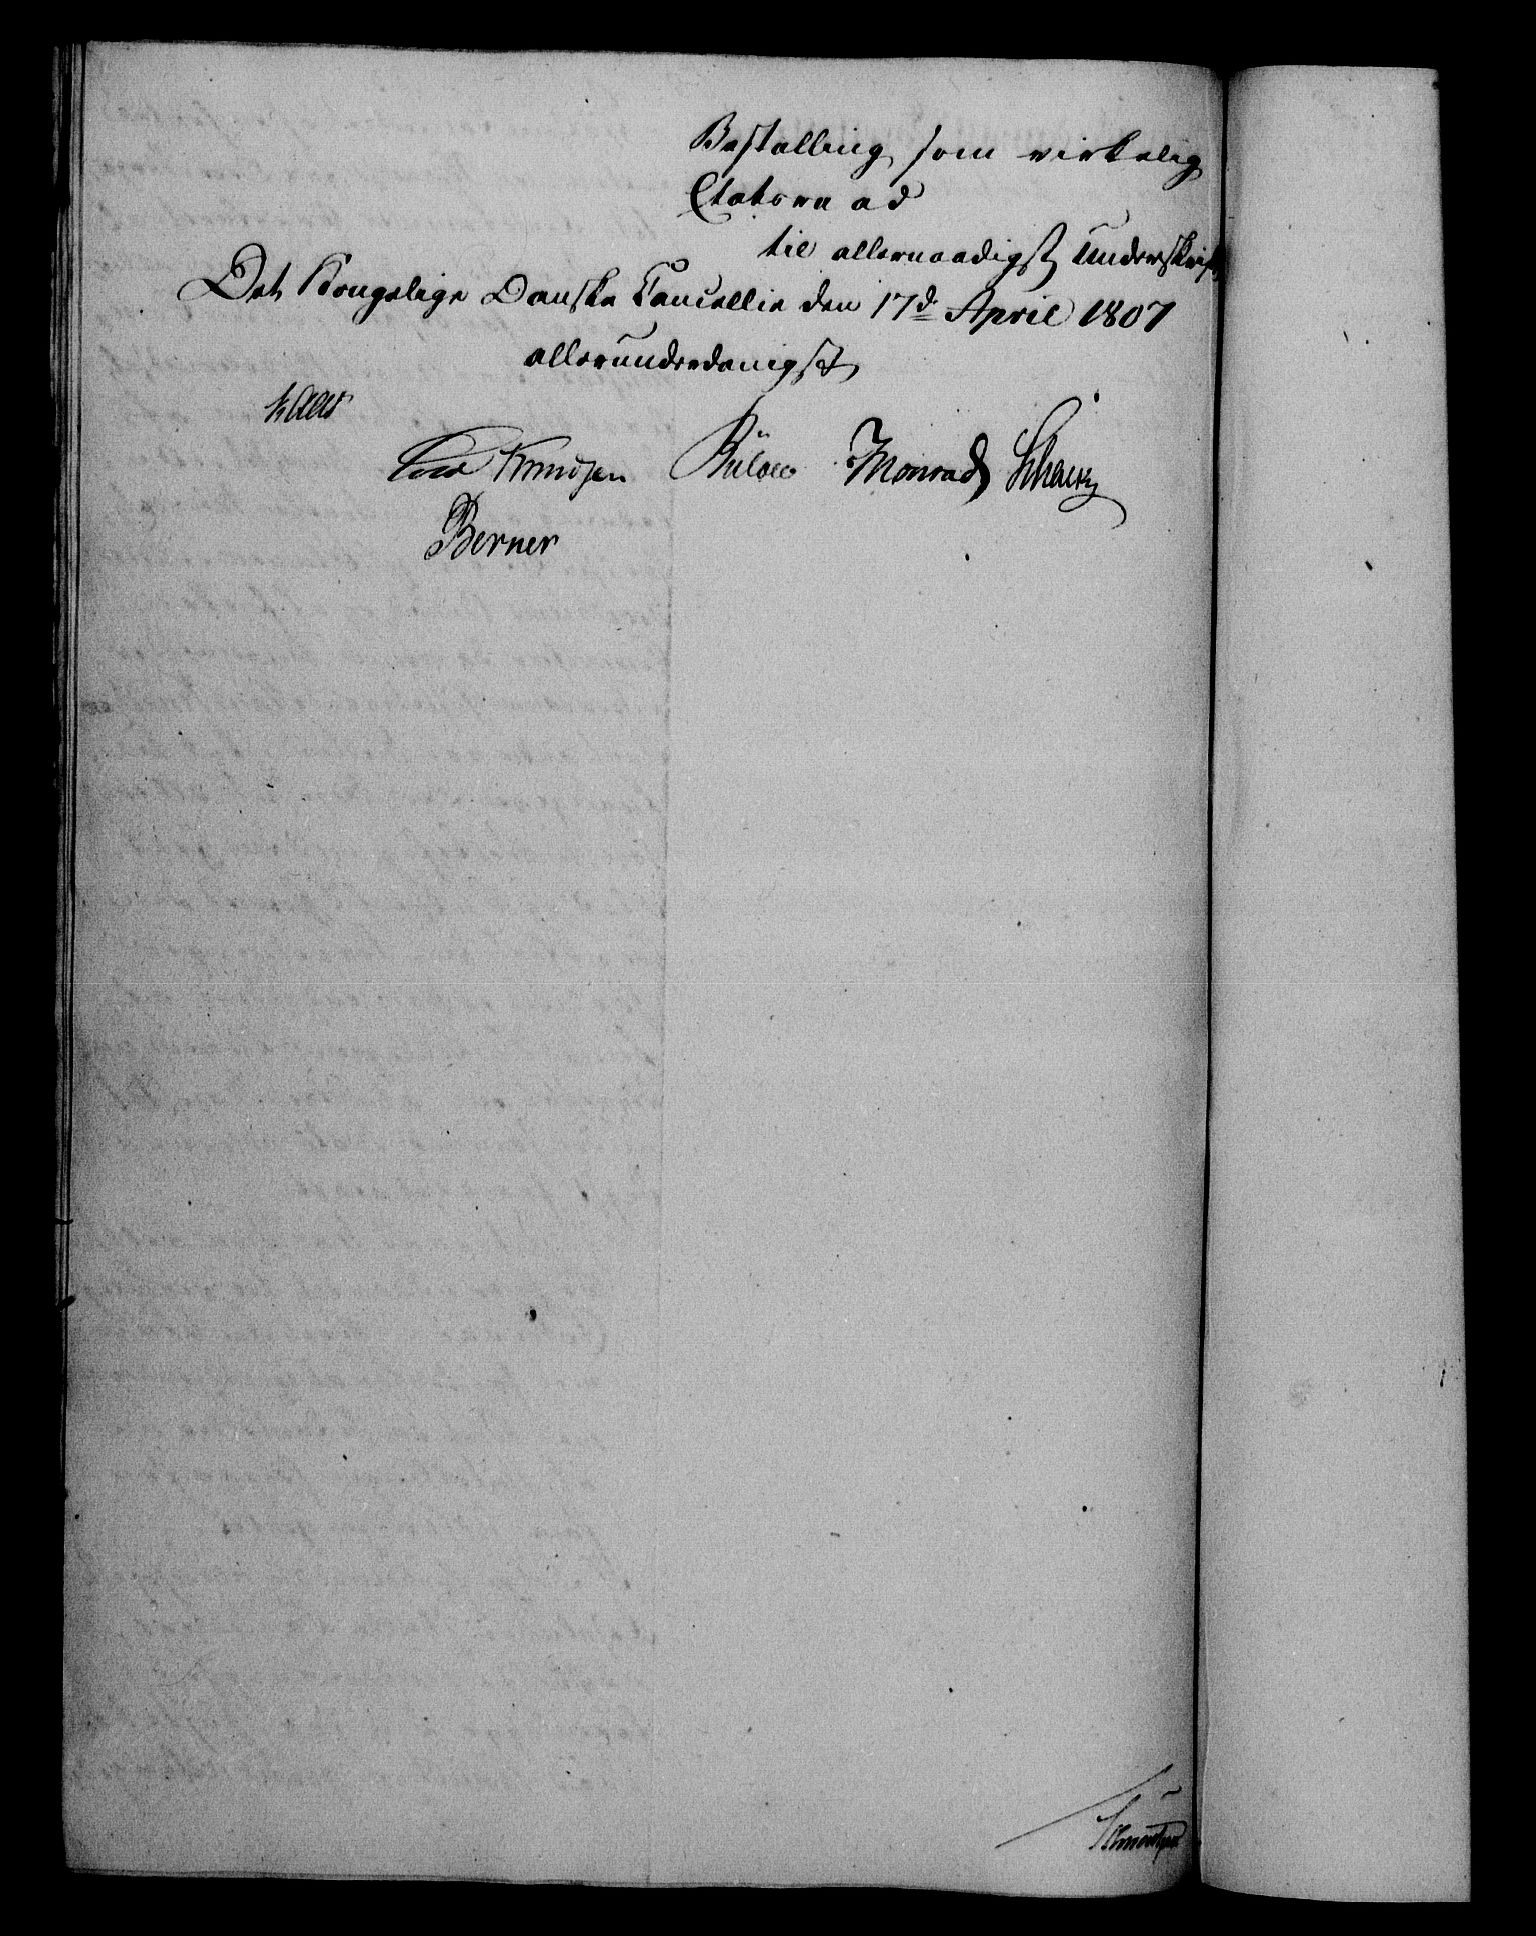 Bestalling som virkelig
Etatsraad
til allernaadigst Underskrift
Det Kongelige Danske Cancellie den 17d April 1807
allerunderdanigst
Kaas
Knudsen Bülow Monrad
Berner